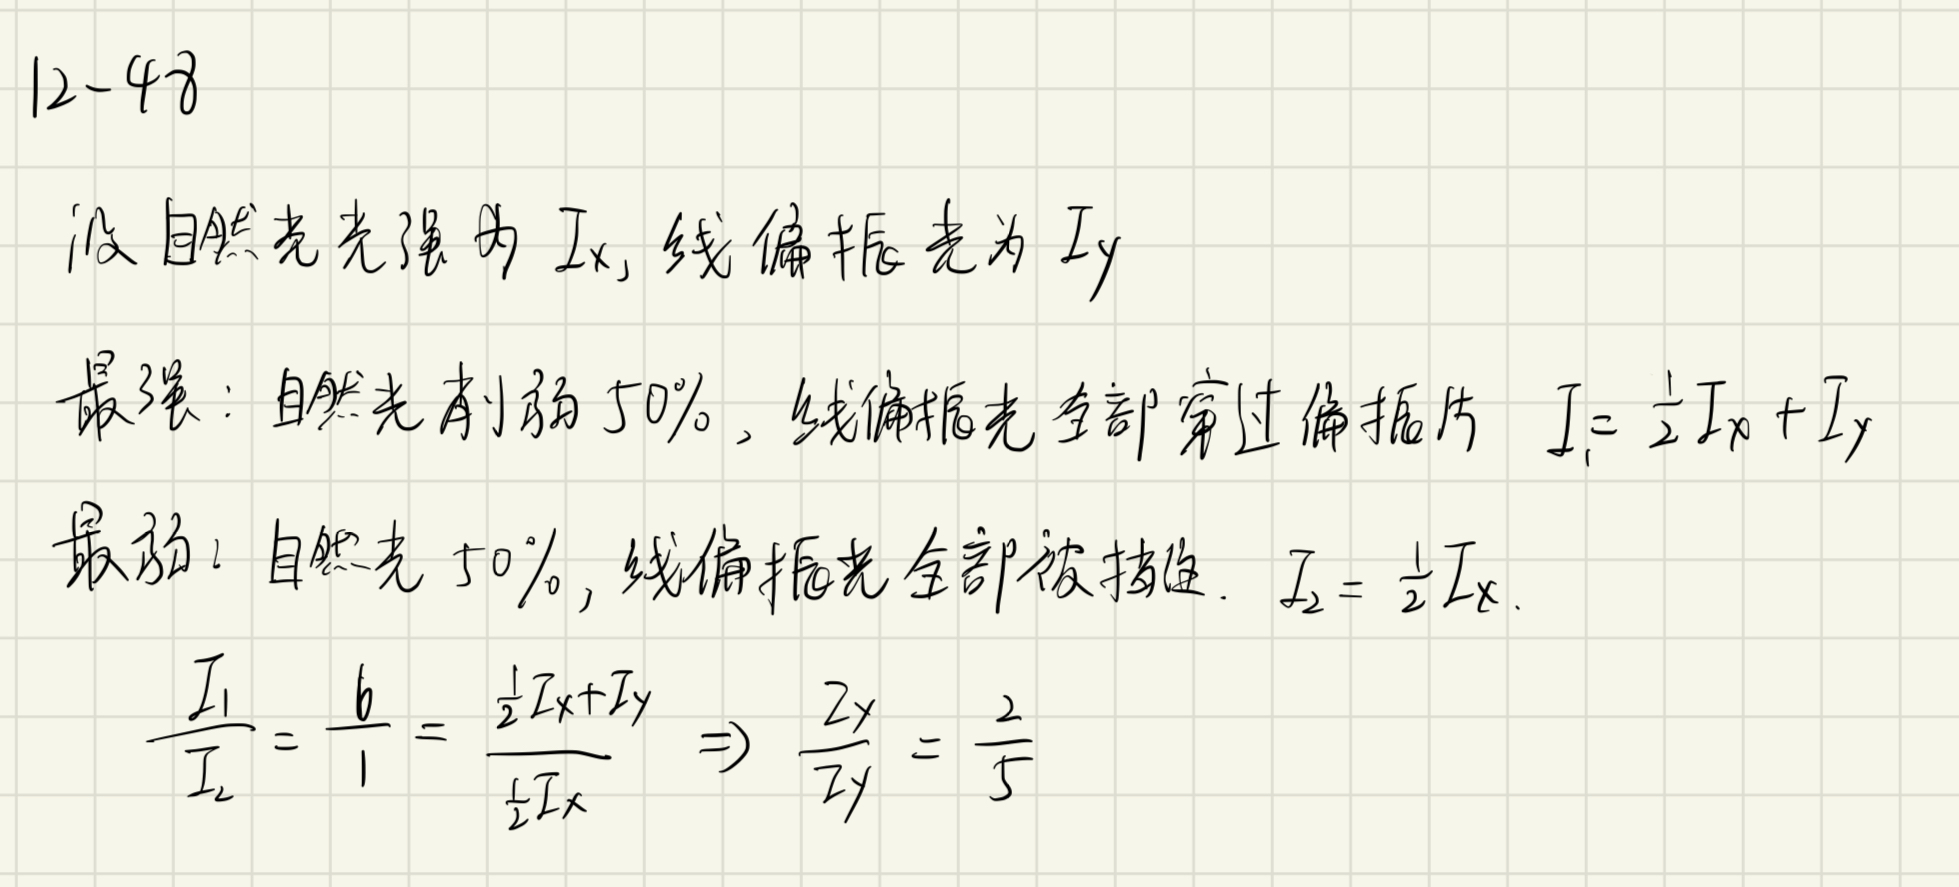 12-48
设自然光光强为 Ix, 线偏振光为 Iy
最强: 自然光削弱50%, 线偏振光全部穿过偏振片 I₁ = 1/2 Ix + Iy
最弱: 自然光50%, 线偏振光全部被挡住. I₂ = 1/2 Ix.
I₁/I₂ = 6/1 = (1/2 Ix + Iy)/(1/2 Ix) ⇒ Ix/Iy = 2/5